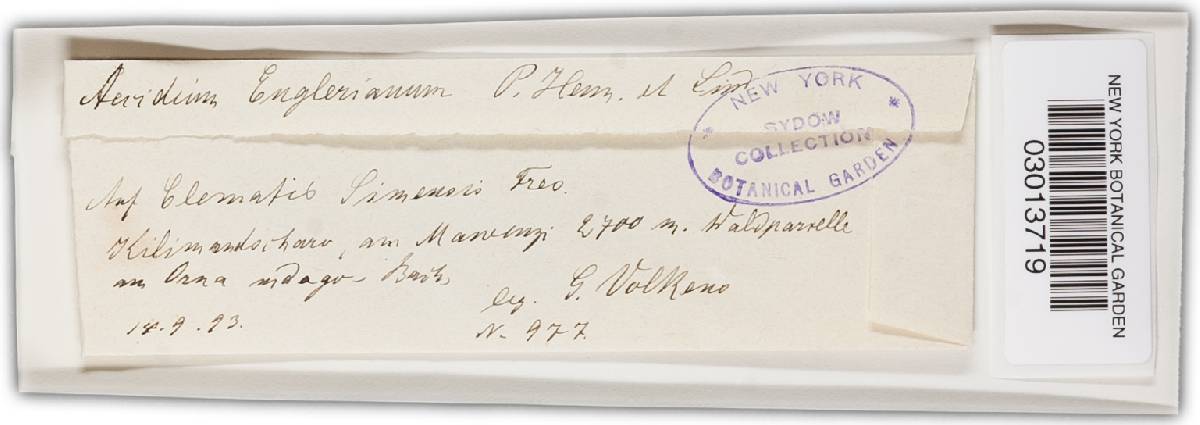 Aecidium Englerianum P. Henn. et Lind
NEW YORK
SYDOW
COLLECTION
BOTANICAL GARDEN
Auf Clematis Simensis Fres.
Kilimandscharo, am Mawenzi 2700 m. Waldparzelle
am Orna ndogo-Bach
leg. G. Volkens
14.9.93.
N. 977.
NEW YORK BOTANICAL GARDEN
03013719